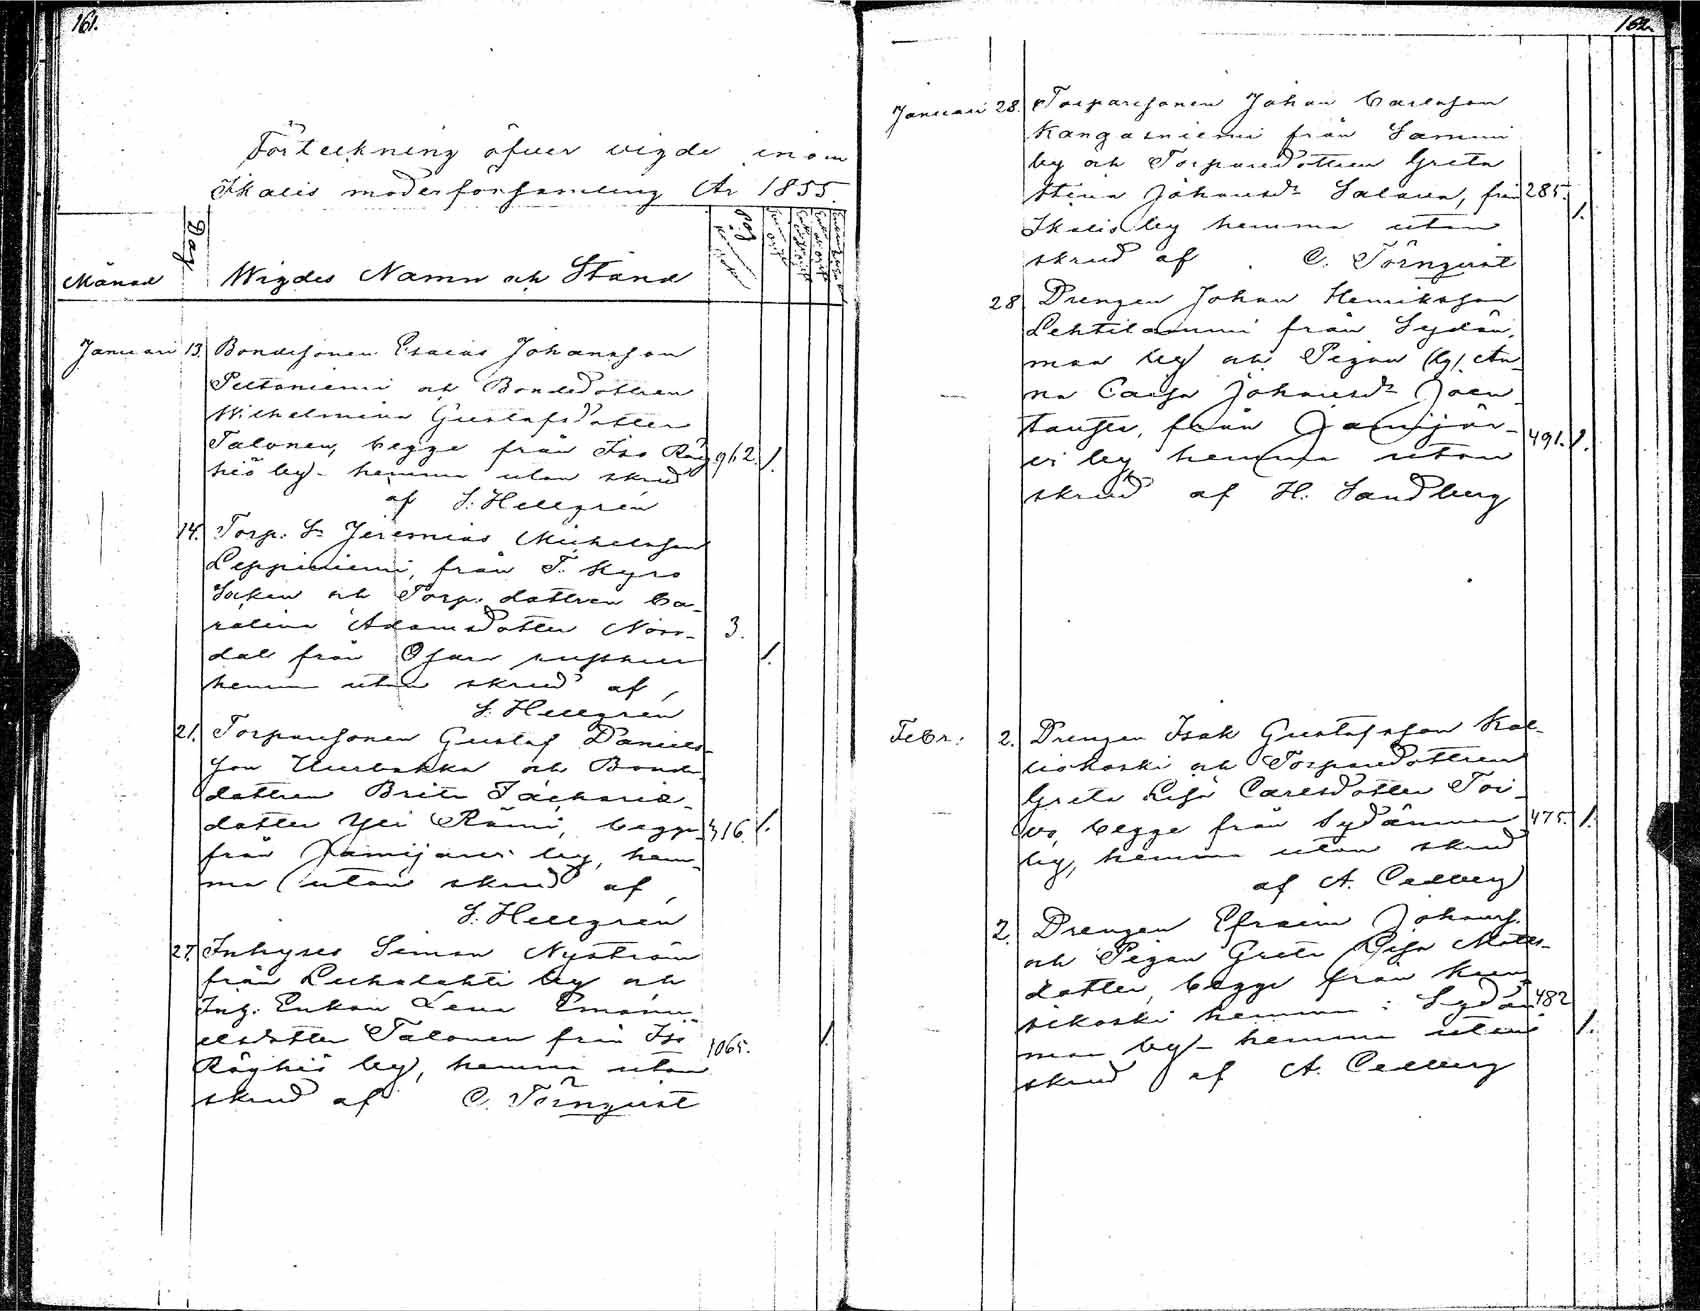 161.
Förteckning öfver vigde inom
Ikalis moderförsamling År 1855.
Månad
Dag
Wigdes Namn och Stånd
Pag
Januari 13. Bondesonen Esaias Johansson
Peltoniemi och Bondedottren
Wilhelmina Gustafsdotter
Talonen, begge från Iso Röy
hiö by - hemma utan skrud 962. 1.
af S. Hellgrén
14. Torp. Sn Jeremias Michelsson
Leppiniemi, från T. Kyro
Socken och Torp. dottren Ca-
rolina Adamsdotter Norr- 3.
dal från Osara 1.
hemma utan skrud af
S. Hellgrén
21. Torparesonen Gustaf Daniels-
son Uurbakka och Bonde
dottren Brita Zacharie-
dotter Yli Rämi, begge 416. 1.
från Jämijärvi by, hem-
ma utan skrud af
S. Hellgrén
27. Inhyses Simon Nyström
från Leikalahti by och
Inh. Enkan Lena Emanu
elsdotter Talonen från Iso
Röyhiö by, hemma utan 1065. 1.
skrud af C. Törnqvist
162.
Januari 28. Torparesonen Johan Carlsson
Kangasniemi från Sammi
by och Torparedottren Greta
Stina Johansdr Salava, från 285. 1.
Ikalis by hemma utan
skrud af C. Törnqvist
28. Drengen Johan Henriksson
Lehtilammi från Sydän
maa by och Pigan An-
na Caisa Johansdr Joen-
tausta, från Jämijär- 491. 1.
vi by hemma utan
skrud af H. Sandberg
Febr: 2. Drengen Isak Gustafsson Kal-
liokoski och Torparedottren
Greta Lisa Carlsdotter Toi-
vo, begge från Sydänmaa 475. 1.
by, hemma utan skrud
af A. Cedberg
2. Drengen Efraim Johanss.
och Pigan Greta Lisa Matts-
dotter, begge från Kuu
sikoski hemman i Sydän 482
maa by - hemma utan 1.
skrud af A. Cedberg